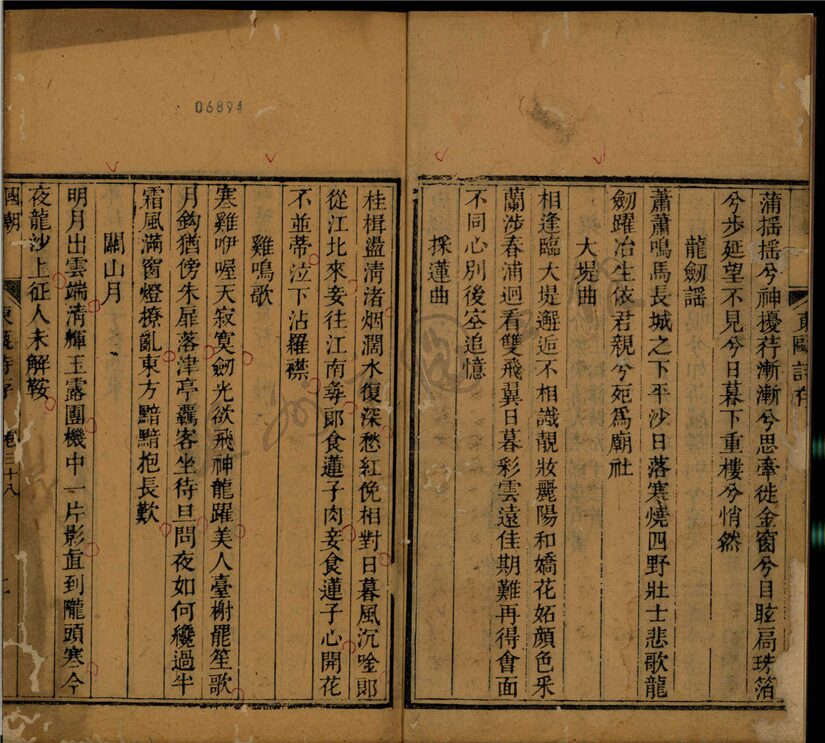 蒲搖搖兮神擾荇漸漸兮思牽徙金窗兮目眩扃珠箔
兮步延望不見兮日暮下重樓兮悄然
龍劒謠
蕭蕭鳴馬長城之下平沙日落寒燒四野壯士悲歌龍
劒躍冶生依君親兮死爲廟社
大堤曲
相逢臨大堤邂逅不相識靚妝麗陽和嬌花妬顔色采
蘭涉春浦迴看雙飛翼日暮彩雲遠佳期難再得會面
不同心別後空追憶
採蓮曲
桂楫盪清渚烟濶水復深愁紅俛相對日暮風沉唫郎
從江北來妾往江南尋郎食蓮子肉妾食蓮子心開花
不並蒂泣下沾羅襟
雞鳴歌
寒雞咿喔天寂寞劒光欲飛神龍躍美人臺榭罷笙歌
月鉤猶傍朱扉落津亭羈客坐待旦問夜如何纔過半
霜風滿窗燈撩亂東方黯黯抱長歎
關山月
明月出雲端清輝玉露團機中一片影直到隴頭寒今
夜龍沙上征人未解鞍
東甌詩存
國朝
東甌詩存 卷三十八 二
06894